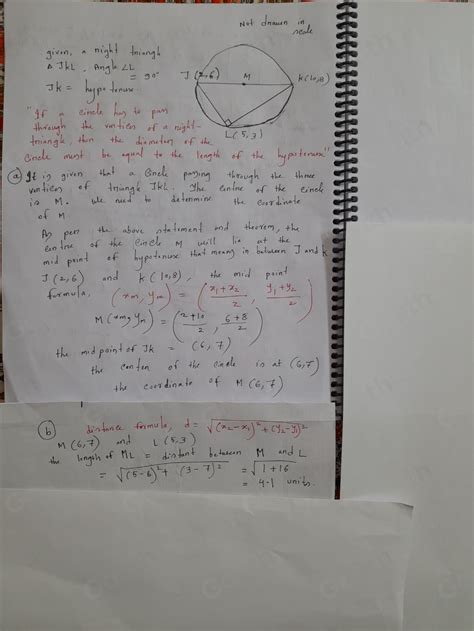 Not drawn in
scale
given, a right triangle
Δ JKL. Angle ∠L
= 90°
JK = hypotenuse
J (2,6)
M
K (10,8)
L (5,3)
"If a circle has to pass
through the vertices of a right-
triangle then the diameter of the
circle must be equal to the length of the hypotenuse"
(a) It is given that a circle passing through the three
vertices of triangle JKL. The centre of the circle
is M. We need to determine the coordinate
of M.
As per the above statement and theorem, the
centre of the circle M will lie at the
mid point of hypotenuse that means in between J and K
J (2,6) and K (10,8), the mid point
formula. (xm, ym) = (x₁+x₂/2, y₁+y₂/2)
M (xm, ym) = (2+10/2, 6+8/2)
the mid point of JK = (6,7)
the center of the circle is at (6,7)
the coordinate of M (6,7)
(b) distance formula, d = √(x₂-x₁)²+(y₂-y₁)²
M (6,7) and L (5,3)
the length of ML = distant between M and L
= √(5-6)²+(3-7)² = √1+16
= 4.1 units.